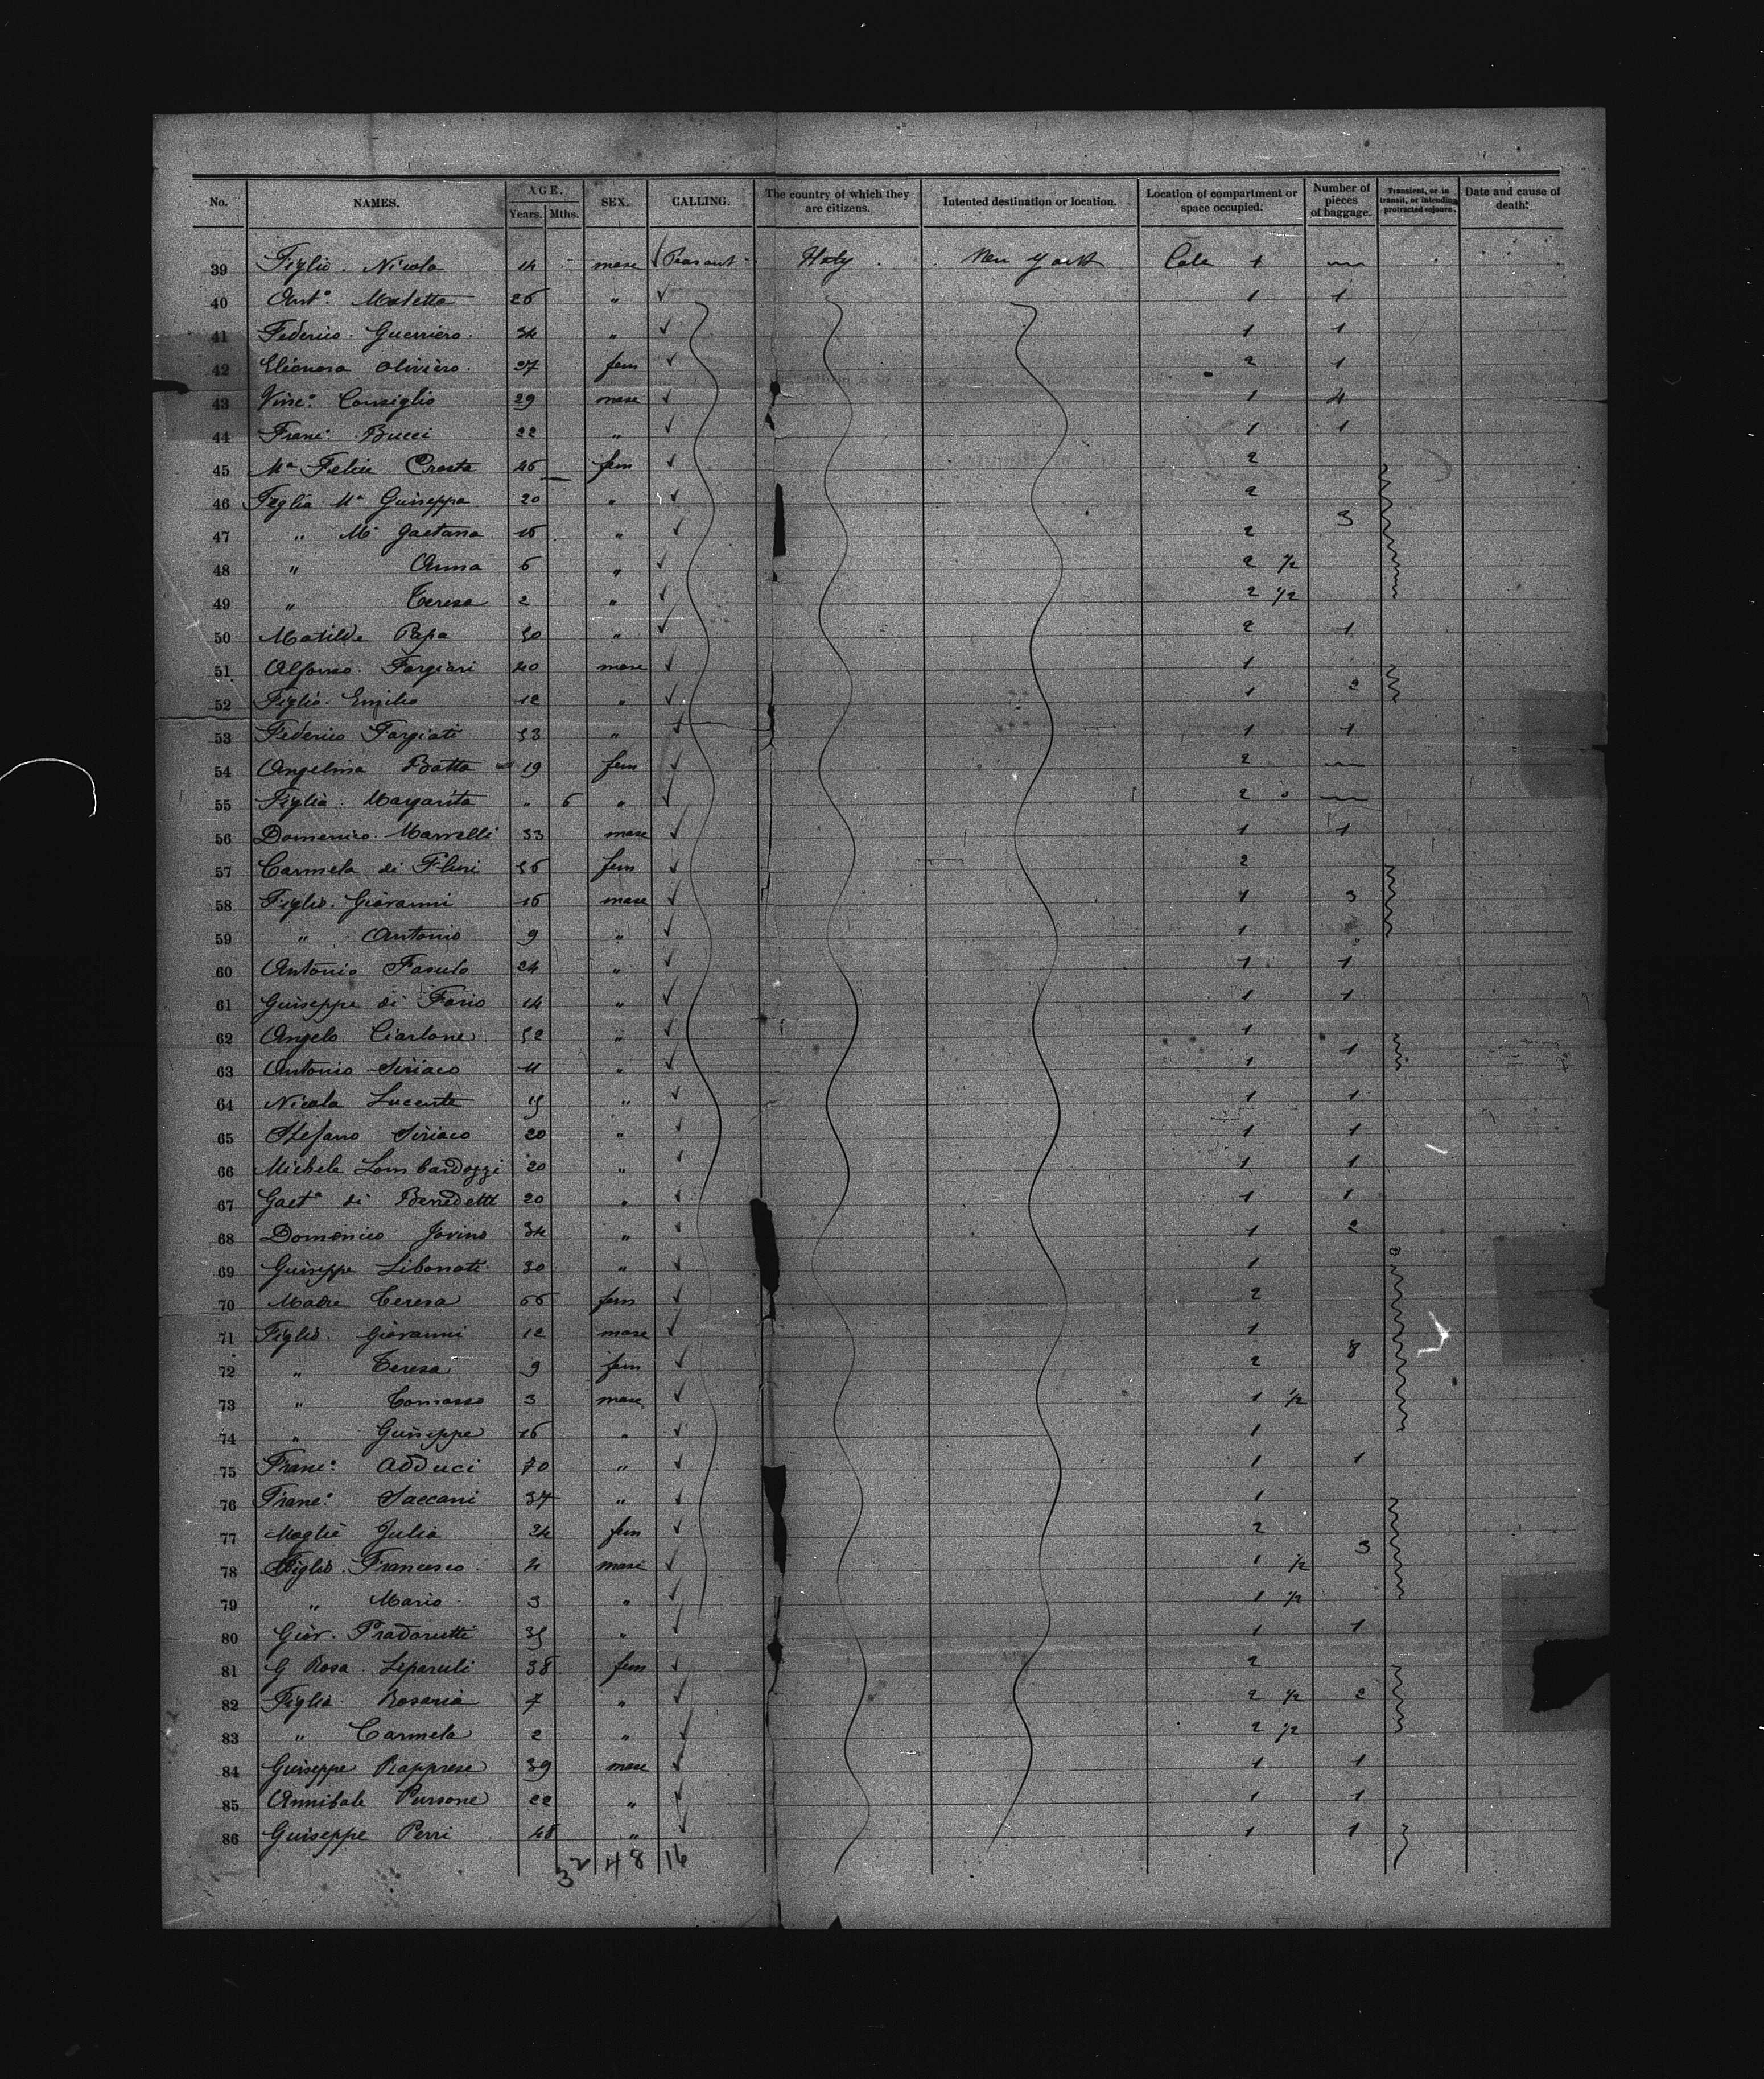 No. NAMES. AGE. Years. Mths. SEX. CALLING. The country of which they are citizens. Intented destination or location. Location of compartment or space occupied. Number of pieces of baggage. Transient, or in transit, or intending protracted sojourn. Date and cause of death:
39 Figlio. Nicola 14 masc Peasant Italy New York Cale 1
40 Ant.o 26 " 1 1
41 Federico Guerriero 34 " 1 1
42 Eleonora Oliviero 27 fem 2 1
43 Vinc.o Consiglio 29 masc 1 4
44 Franc.o Bucci 22 " 1 1
45 Ma Felice 46 fem 2
46 Figlia Ma Guiseppa 20 " 2
47 " Ma Gaetana 16 " 2 3
48 " Anna 6 " 2 1/2
49 " Teresa 2 " 2 1/2
50 Matilde Papa 30 " 2 1
51 Alfonso Fargiari 40 masc 1
52 Figlio. Emilio 12 " 1 2
53 Federico Fargiati 33 " 1 1
54 Angelina Batta 19 fem 2
55 Figlia. Margarita " 6 " 2 0
56 Domenico Marrelli 33 masc 1 1
57 Carmela di 36 fem 2
58 Figlio. Giovanni 16 masc 1 3
59 " Antonio 9 " 1
60 Antonio Fasulo 24 " 1 1
61 Guiseppe di Fario 14 " 1 1
62 Angelo Ciarlone 32 " 1
63 Antonio Siriaco 11 " 1 1
64 Nicola Lucente 19 " 1 1
65 Stefano Siriaco 20 " 1 1
66 Michele Lombardozzi 20 " 1 1
67 Gaet.o di Benedetti 20 " 1 1
68 Domenico Jovino 34 " 1 2
69 Guiseppe Libonati 30 " 1
70 Madre Teresa 66 fem 2
71 Figlio. Giovanni 12 masc 1
72 " Teresa 9 fem 2 8
73 " Tomasso 3 masc 1 1/2
74 " Guiseppe 16 " 1
75 Franc.o Adduci 70 " 1 1
76 Franc.o Saccani 37 " 1
77 Moglie Julia 24 fem 2
78 Figlio. Francesco 4 masc 1 1/2 3
79 " Mario 3 " 1 1/2
80 Giov. Pradorutti 35 " 1 1
81 G Rosa Leparuli 38 fem 2
82 Figlia Rosaria 7 " 2 1/2 2
83 " Carmela 2 " 2 1/2
84 Guiseppe Rapprese 39 masc 1 1
85 Annibale Pursone 22 " 1 1
86 Guiseppe Perri 48 " 1 1
32 48 16